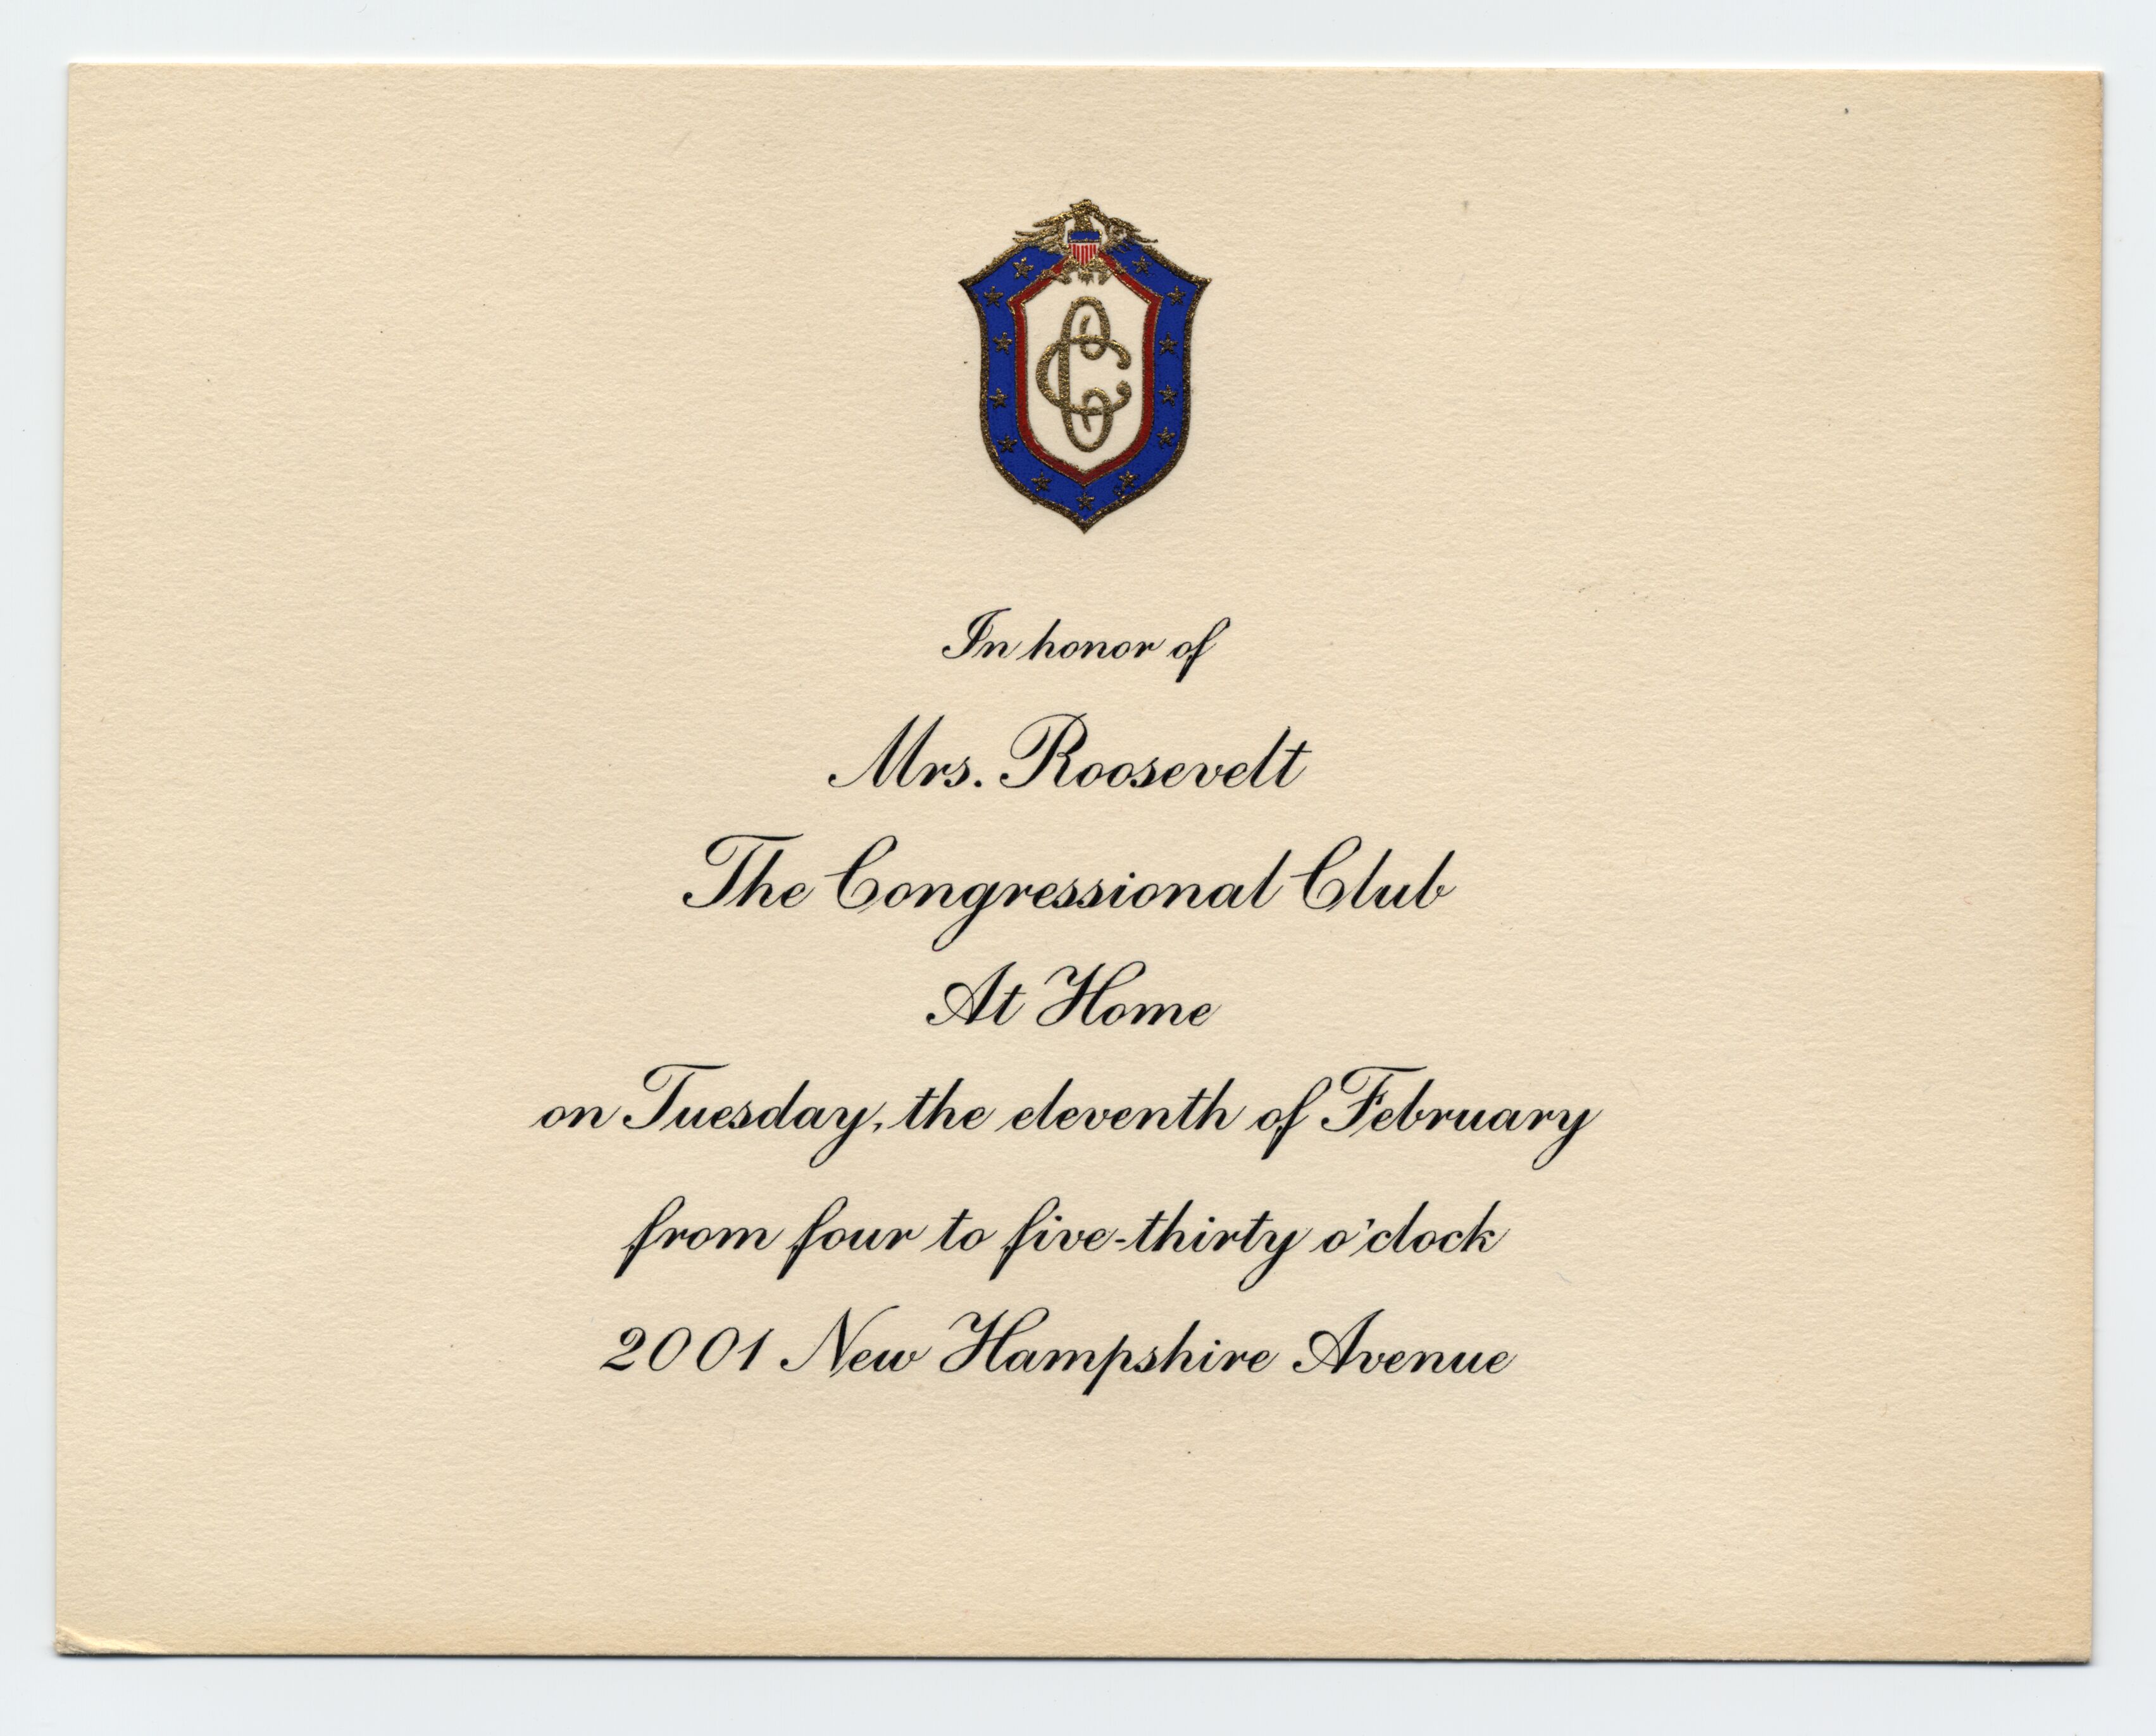 CC
In honor of
Mrs. Roosevelt
The Congressional Club
At Home
on Tuesday, the eleventh of February
from four to five-thirty o'clock
2001 New Hampshire Avenue